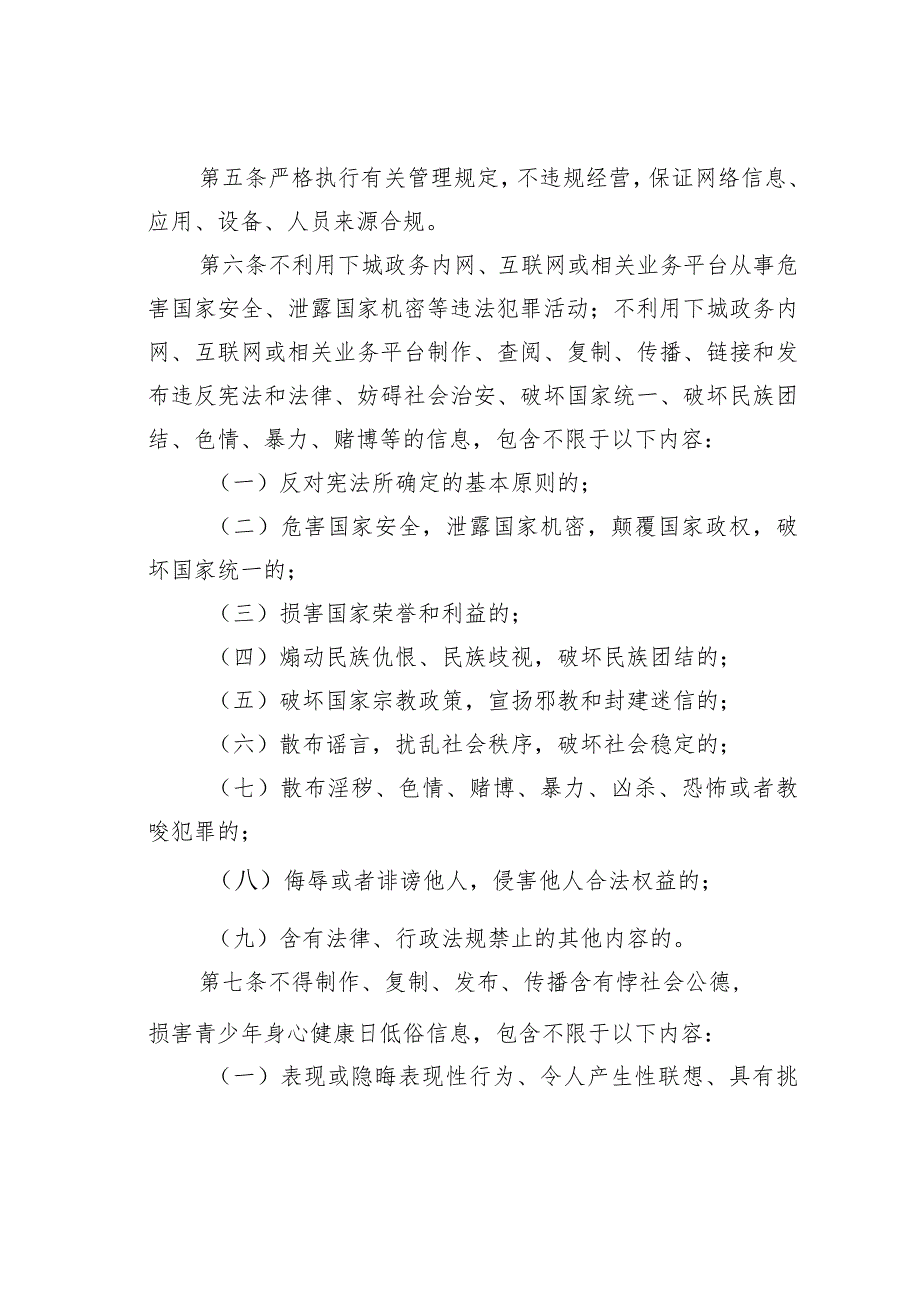 第五条严格执行有关管理规定，不违规经营，保证网络信息、
应用、设备、人员来源合规。
第六条不利用下城政务内网、互联网或相关业务平台从事危
害国家安全、泄露国家机密等违法犯罪活动；不利用下城政务内
网、互联网或相关业务平台制作、查阅、复制、传播、链接和发
布违反宪法和法律、妨碍社会治安、破坏国家统一、破坏民族团
结、色情、暴力、赌博等的信息，包含不限于以下内容：
（一）反对宪法所确定的基本原则的；
（二）危害国家安全，泄露国家机密，颠覆国家政权，破
坏国家统一的；
（三）损害国家荣誉和利益的；
（四）煽动民族仇恨、民族歧视，破坏民族团结的；
（五）破坏国家宗教政策，宣扬邪教和封建迷信的；
（六）散布谣言，扰乱社会秩序，破坏社会稳定的；
（七）散布淫秽、色情、赌博、暴力、凶杀、恐怖或者教
唆犯罪的；
（八）侮辱或者诽谤他人，侵害他人合法权益的；
（九）含有法律、行政法规禁止的其他内容的。
第七条不得制作、复制、发布、传播含有悖社会公德，
损害青少年身心健康日低俗信息，包含不限于以下内容：
（一）表现或隐晦表现性行为、令人产生性联想、具有挑